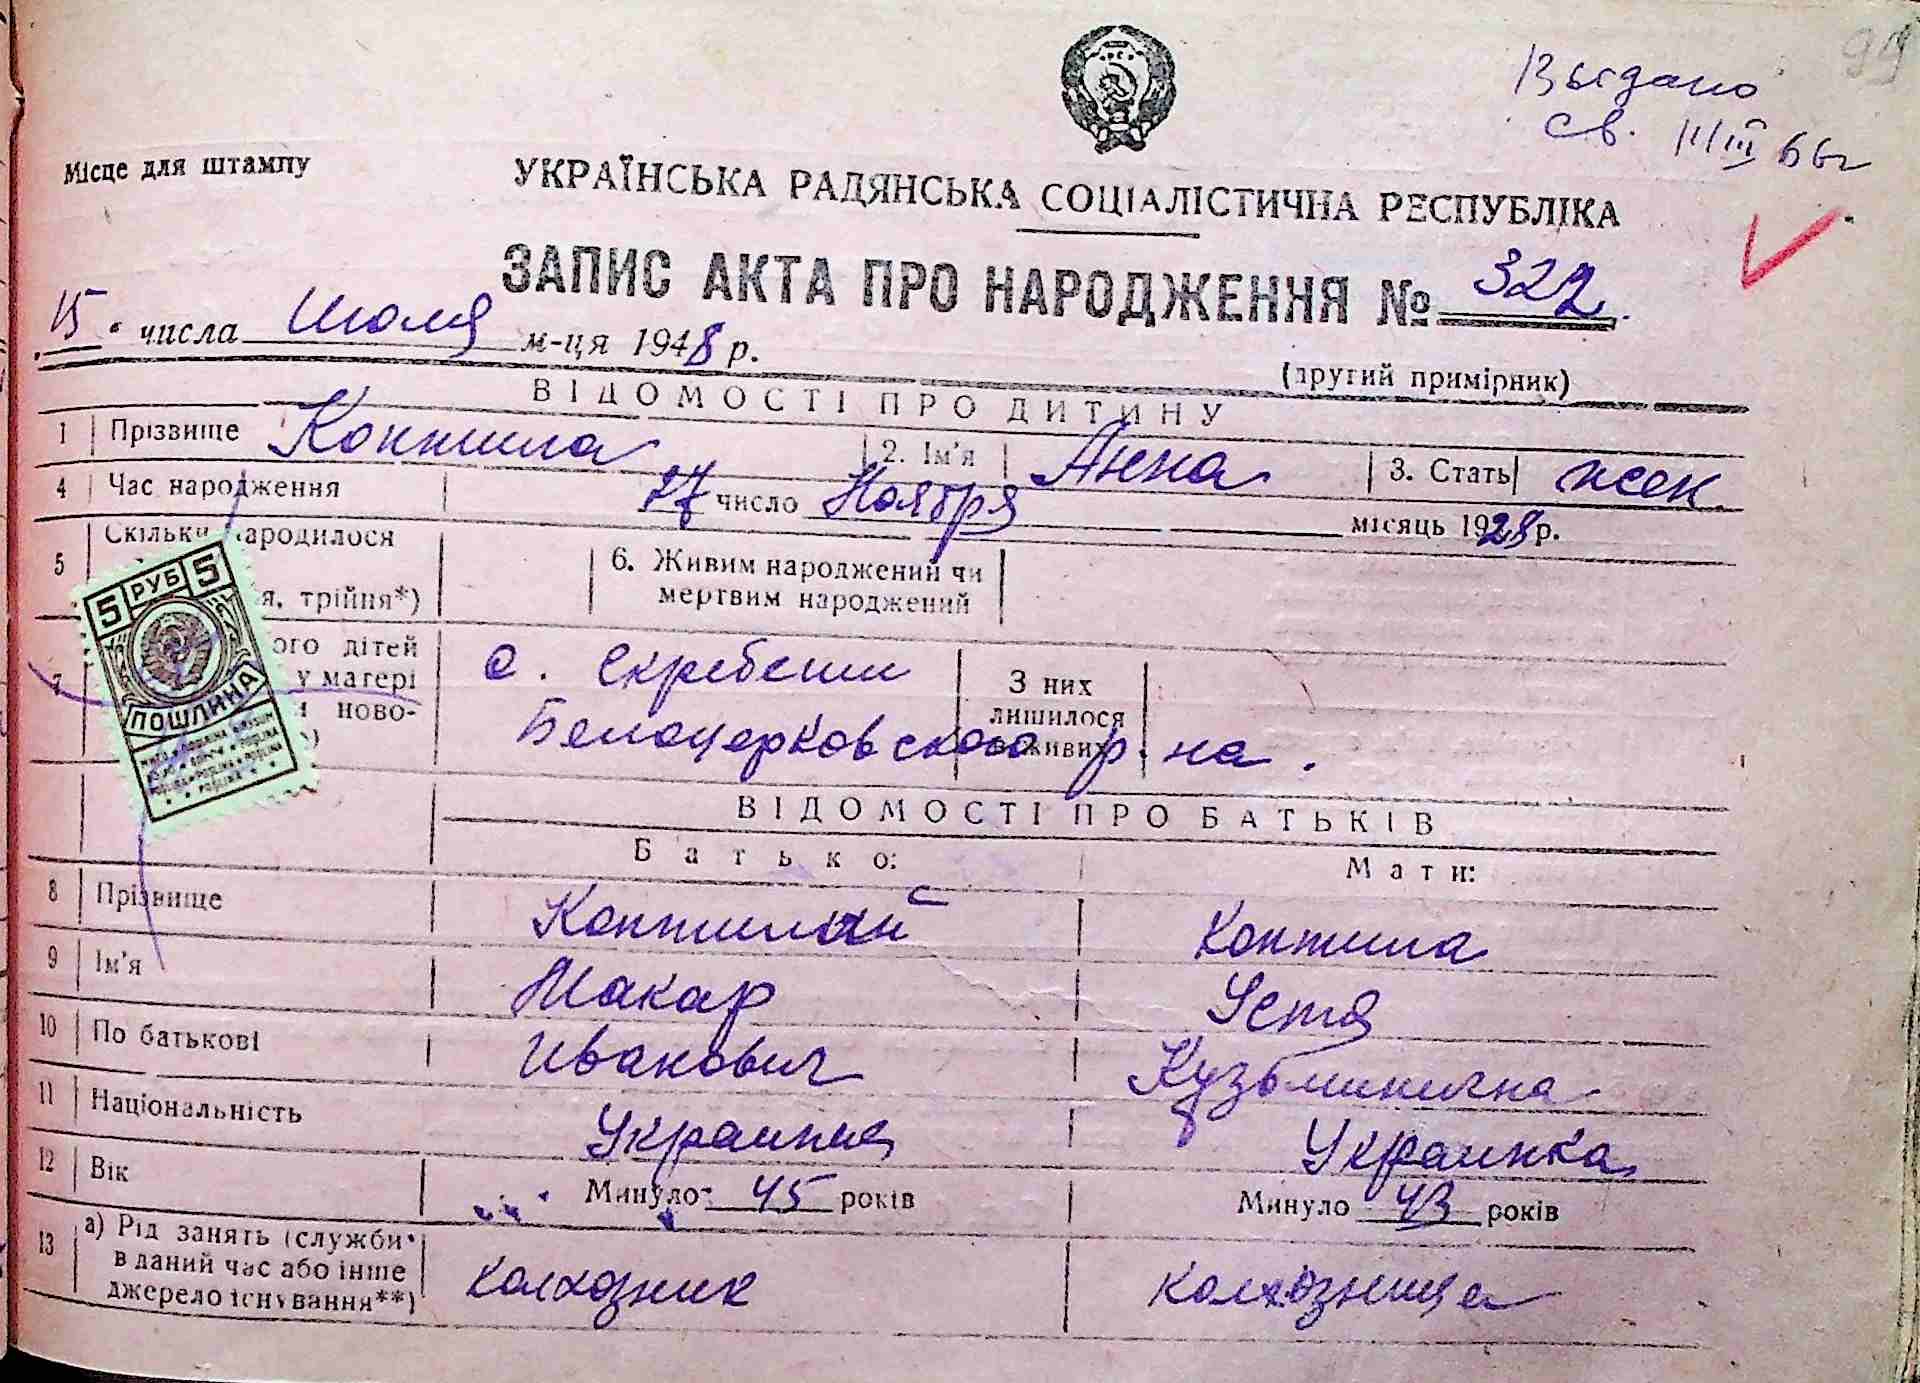 99
Выдано
св. 11/III 66г
Місце для штампу
УКРАЇНСЬКА РАДЯНСЬКА СОЦІАЛІСТИЧНА РЕСПУБЛІКА
ЗАПИС АКТА ПРО НАРОДЖЕННЯ № 322
15 числа Июля м-ця 1948 р.
(другий примірник)
ВІДОМОСТІ ПРО ДИТИНУ
1 Прізвище Коптила 2. Ім'я Анна 3. Стать жен
4 Час народження 27 число Ноября місяць 1928 р.
5 Скільки народилося
я, трійня*)
6. Живим народжений чи
мертвим народжений
7 ого дітей
у матері
ново-
с. Скребеши
Белоцерковского р-на.
З них
лишилося
живих
5 РУБ 5
ПОШЛИНА
ВІДОМОСТІ ПРО БАТЬКІВ
Батько: Мати:
8 Прізвище Коптилый Коптила
9 Ім'я Макар Устя
10 По батькові Иванович Кузьминична
11 Національність Украинец Украинка
12 Вік Минуло 45 років Минуло 43 років
13 а) Рід занять (служби
в даний час або інше
джерело існування**)
колхозник колхозница